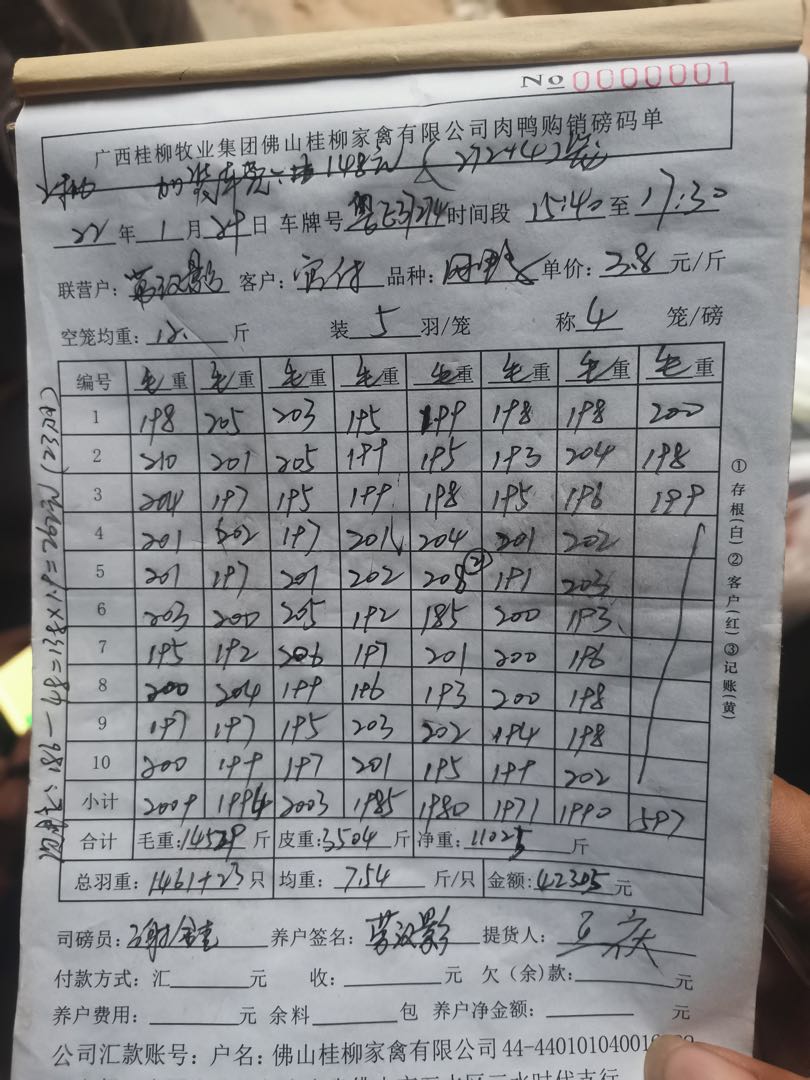 No 0000001
广西桂柳牧业集团佛山桂柳家禽有限公司肉鸭购销磅码单
148元 (272+4)
22 年 1 月 29 日 车牌号 粤E37274 时间段 15:40 至 17:30
联营户: 客户: 品种: 单价: 3.8 元/斤
空笼均重: 12. 斤 装 5 羽/笼 称 4 笼/磅
编号 毛重 毛重 毛重 毛重 毛重 毛重 毛重 毛重
1 198 205 203 195 199 198 198 200
2 210 201 205 199 195 193 204 198
3 204 197 195 199 198 195 196 199
4 201 202 197 201 204 201 202
5 201 197 201 202 208 ② 191 203
6 203 200 205 192 185 200 193
7 195 192 206 197 201 200 196
8 200 204 199 196 193 200 198
9 197 197 195 203 202 194 198
10 200 199 197 201 195 199 202
小计 2009 1994 2003 1985 1980 1971 1990 597
合计 毛重: 14529 斤 皮重: 3504 斤 净重: 11025 斤
总羽重: 1461+23 只 均重: 7.54 斤/只 金额: 42305 元
司磅员: 养户签名: 提货人:
付款方式: 汇 元 收: 元 欠(余)款: 元
养户费用: 元 余料 包 养户净金额: 元
公司汇款账号: 户名: 佛山桂柳家禽有限公司 44-440101040016
186-48=138×1.9=262元(23只)
①存根(白)②客户(红)③记账(黄)